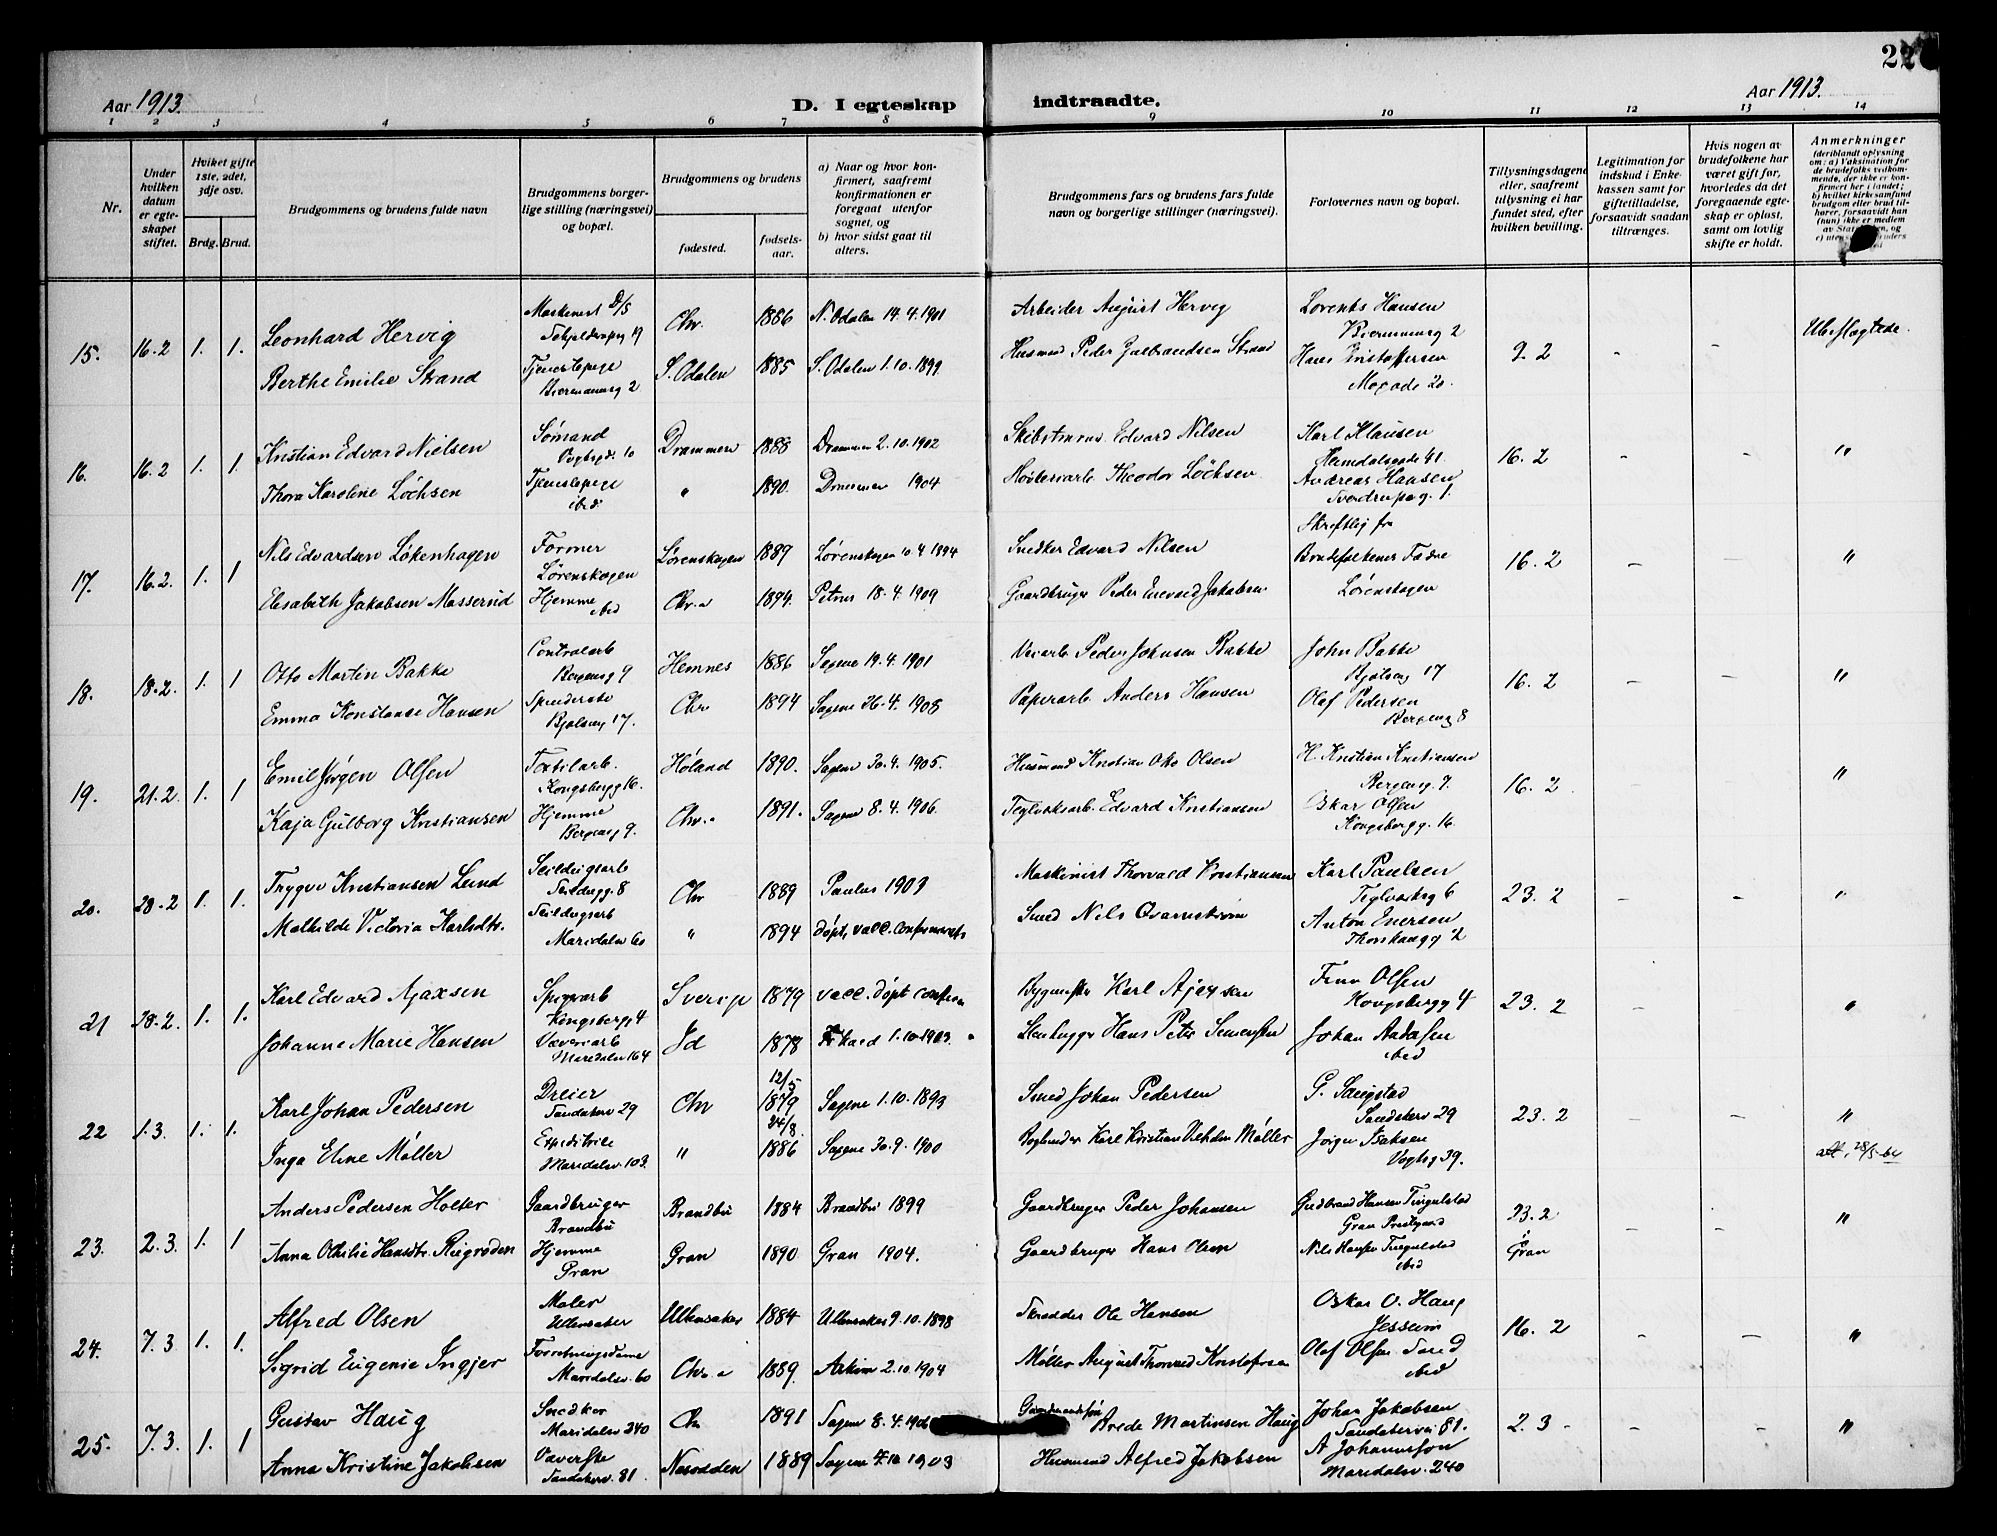 22
Aar 1913.
D. I egteskap indtraadte.
Aar 1913.
1 2 3 4 5 6 7 8 9 10 11 12 13 14
Nr.
Under hvilken datum er egteskapet stiftet.
Hviket gifte 1ste, 2det, 3dje osv.
Brdg. Brud.
Brudgommens og brudens fulde navn
Brudgommens borgerlige stilling (næringsvei) og bopæl.
Brudgommens og brudens
fødested.
fødselsaar.
a) Naar og hvor konfirmert, saafremt konfirmationen er foregaat utenfor sognet, og
b) hvor sidst gaat til alters.
Brudgommens fars og brudens fars fulde navn og borgerlige stillinger (næringsvei).
Forlovernes navn og bopæl.
Tillysningsdagene eller, saafremt tillysning ei har fundet sted, efter hvilken bevilling.
Legitimation for indskud i Enkekassen samt for giftetilladelse, forsaavidt saadan tiltrænges.
Hvis nogen av brudefolkene har været gift før, hvorledes da det foregaaende egteskap er opløst, samt om lovlig skifte er holdt.
Anmerkninger
(deriblandt oplysning om: a) Vaksination for de brudefolks vedkommende, der ikke er konfirmert her i landet; b) hvilket kirkesamfund brudgom eller brud tilhører, forsaavidt han (hun) ikke er medlem av
15. 16.2 1. 1. Leonhard Hervig Maskinist Chr. 1886 N. Odalen 14.4.1901 Arbeider August Hervig Lorents Hansen 9.2 - - Ubeslægtede.
Berthe Emilie Strand Tjenestepige S. Odalen 1885 S. Odalen 1.10.1899 Husmand Peder Strand Hans Kristoffersen
16. 16.2 1. 1. Kristian Edvard Nielsen Sømand Drammen 1888 Drammen 2.10.1902 Edvard Nilsen Karl Klausen Heimdalsgade 41. 16.2 - - "
Thora Karoline Löchsen Tjenestepige ibid. " 1890. Drammen 1904 Theodor Löchsen Andreas Hansen Sverdrupsg. 1.
Skriftlig fra
17. 16.2. 1. 1 Nils Edvardsen Løkenhagen Former Lørenskogen Lørenskogen 1889 Lørenskogen 10.4 1894 Snedker Edvard Nilsen Brudefolkenes Fædre Lørenskogen 16.2 - - "
Elisabeth Jakobsen Masserud Hjemme ibid Chr.a 1894. Petrus 18.4.1909 Gaardbruger Peder Jakobsen
18. 18.2. 1. 1 Otto Martin Bakke Bergensg 9 Hemnes 1886 Sagene 19.4.1901 Veiarb Peder Johnsen Bakke John Bakke 16.2 - - "
Emma Konstanse Hansen Spinderske Bjølseng 17. Chr. 1894 Sagene 26.4.1908 Papirarb. Anders Hansen Olaf Pedersen Bergensg 8
19. 21.2. 1. 1 Emil Jørgen Olsen Textilarb. Kongsbergg 16. Høland 1890. Sagene 30.4.1905. Husmand Kristian Olsen H. Kristian Kristiansen 16.2. "
Kaja Gulborg Kristiansen Hjemme Bergensg 9. Chr.a 1891. Sagene 8.4.1906. Teglverksarb. Edvard Kristiansen Oskar Olsen Kongsbergg. 16.
20. 28.2 1. 1. Trygve Kristiansen Lund Seildugsarb Seildugsg. 8 Chr 1889 Paulus 1903 Maskinist Thorvald Kristiansen Karl Paulsen Teglverksg 6 23.2 - - "
Mathilde Victoria Karlsdtr. Seildugsarb Maridalsv 60 " 1894 døpt, vacc. Smed Nils Qvarnstrøm Anton Enersen
21 28.2. 1. 1. Karl Edvard Ajaxsen Spigerarb Kongsbergg 4 Sverige 1879 vacc. døpt Karl Ajaxsen Finn Olsen Kongsbergg 4 23.2 - "
Johanne Marie Hansen Væveriarb Maridalsv 164 Id 1878 1.10.1903. Stenhugger Hans Peter Johan ibid
22 1.3. 1. 1. Karl Johan Pedersen Dreier Sandakerv 29 Chr 12/5 1879 Sagene 1.10.1893 Smed Johan Pedersen G. Saugstad Sandakerv 29 23.2 - - "
Inga Eline Møller Maridalsv. 103. " 24/8. 1886 Sagene 30.9.1900 Karl Kristian Møller Jørgen Isaksen Vogtsg 39.
att. 28/5-64
23. 2.3. 1. 1 Anders Pedersen Holter Gaardbruger Brandbu Brandbu 1884 Brandbu 1899 Gaardbruger Peder Johansen Gudbrand Hansen Tingelstad 23.2 i Gran - - "
Anna Othilie Hansdtr. Hjemme Gran Gran 1890 Gran 1904. Gaardbruger Hans Olsen Nils Hansen Tingelstad ibid
24. 7.3 1. 1. Alfred Olsen Maler Ullensaker Ullensaker 1884 Ullensaker 9.10.1898 Skrædder Ole Hansen Oskar O. Haug Jessum 16.2 - - "
Sigrid Eugenie Ingjer Forretningsdame Maridalsv. 60 Chr.a 1889. 2.10.1904 Møller August Thorvald Kristofersen Olaf Olsen Sand ibid
25. 7.3. 1. 1 Gustav Haug Snedker Maridalsv 240 Chr 1891 Sagene 8.4.1906 Brede Martinsen Haug Johan Jakobsen Sandakerv 81. 2.3 - - - "
Anna Kristine Jakobsen Væverske Sandakerv. 81. Nesodden 1889 Sagene 1903 Husmand Alfred Jakobsen A Johannesson Maridalsv. 240